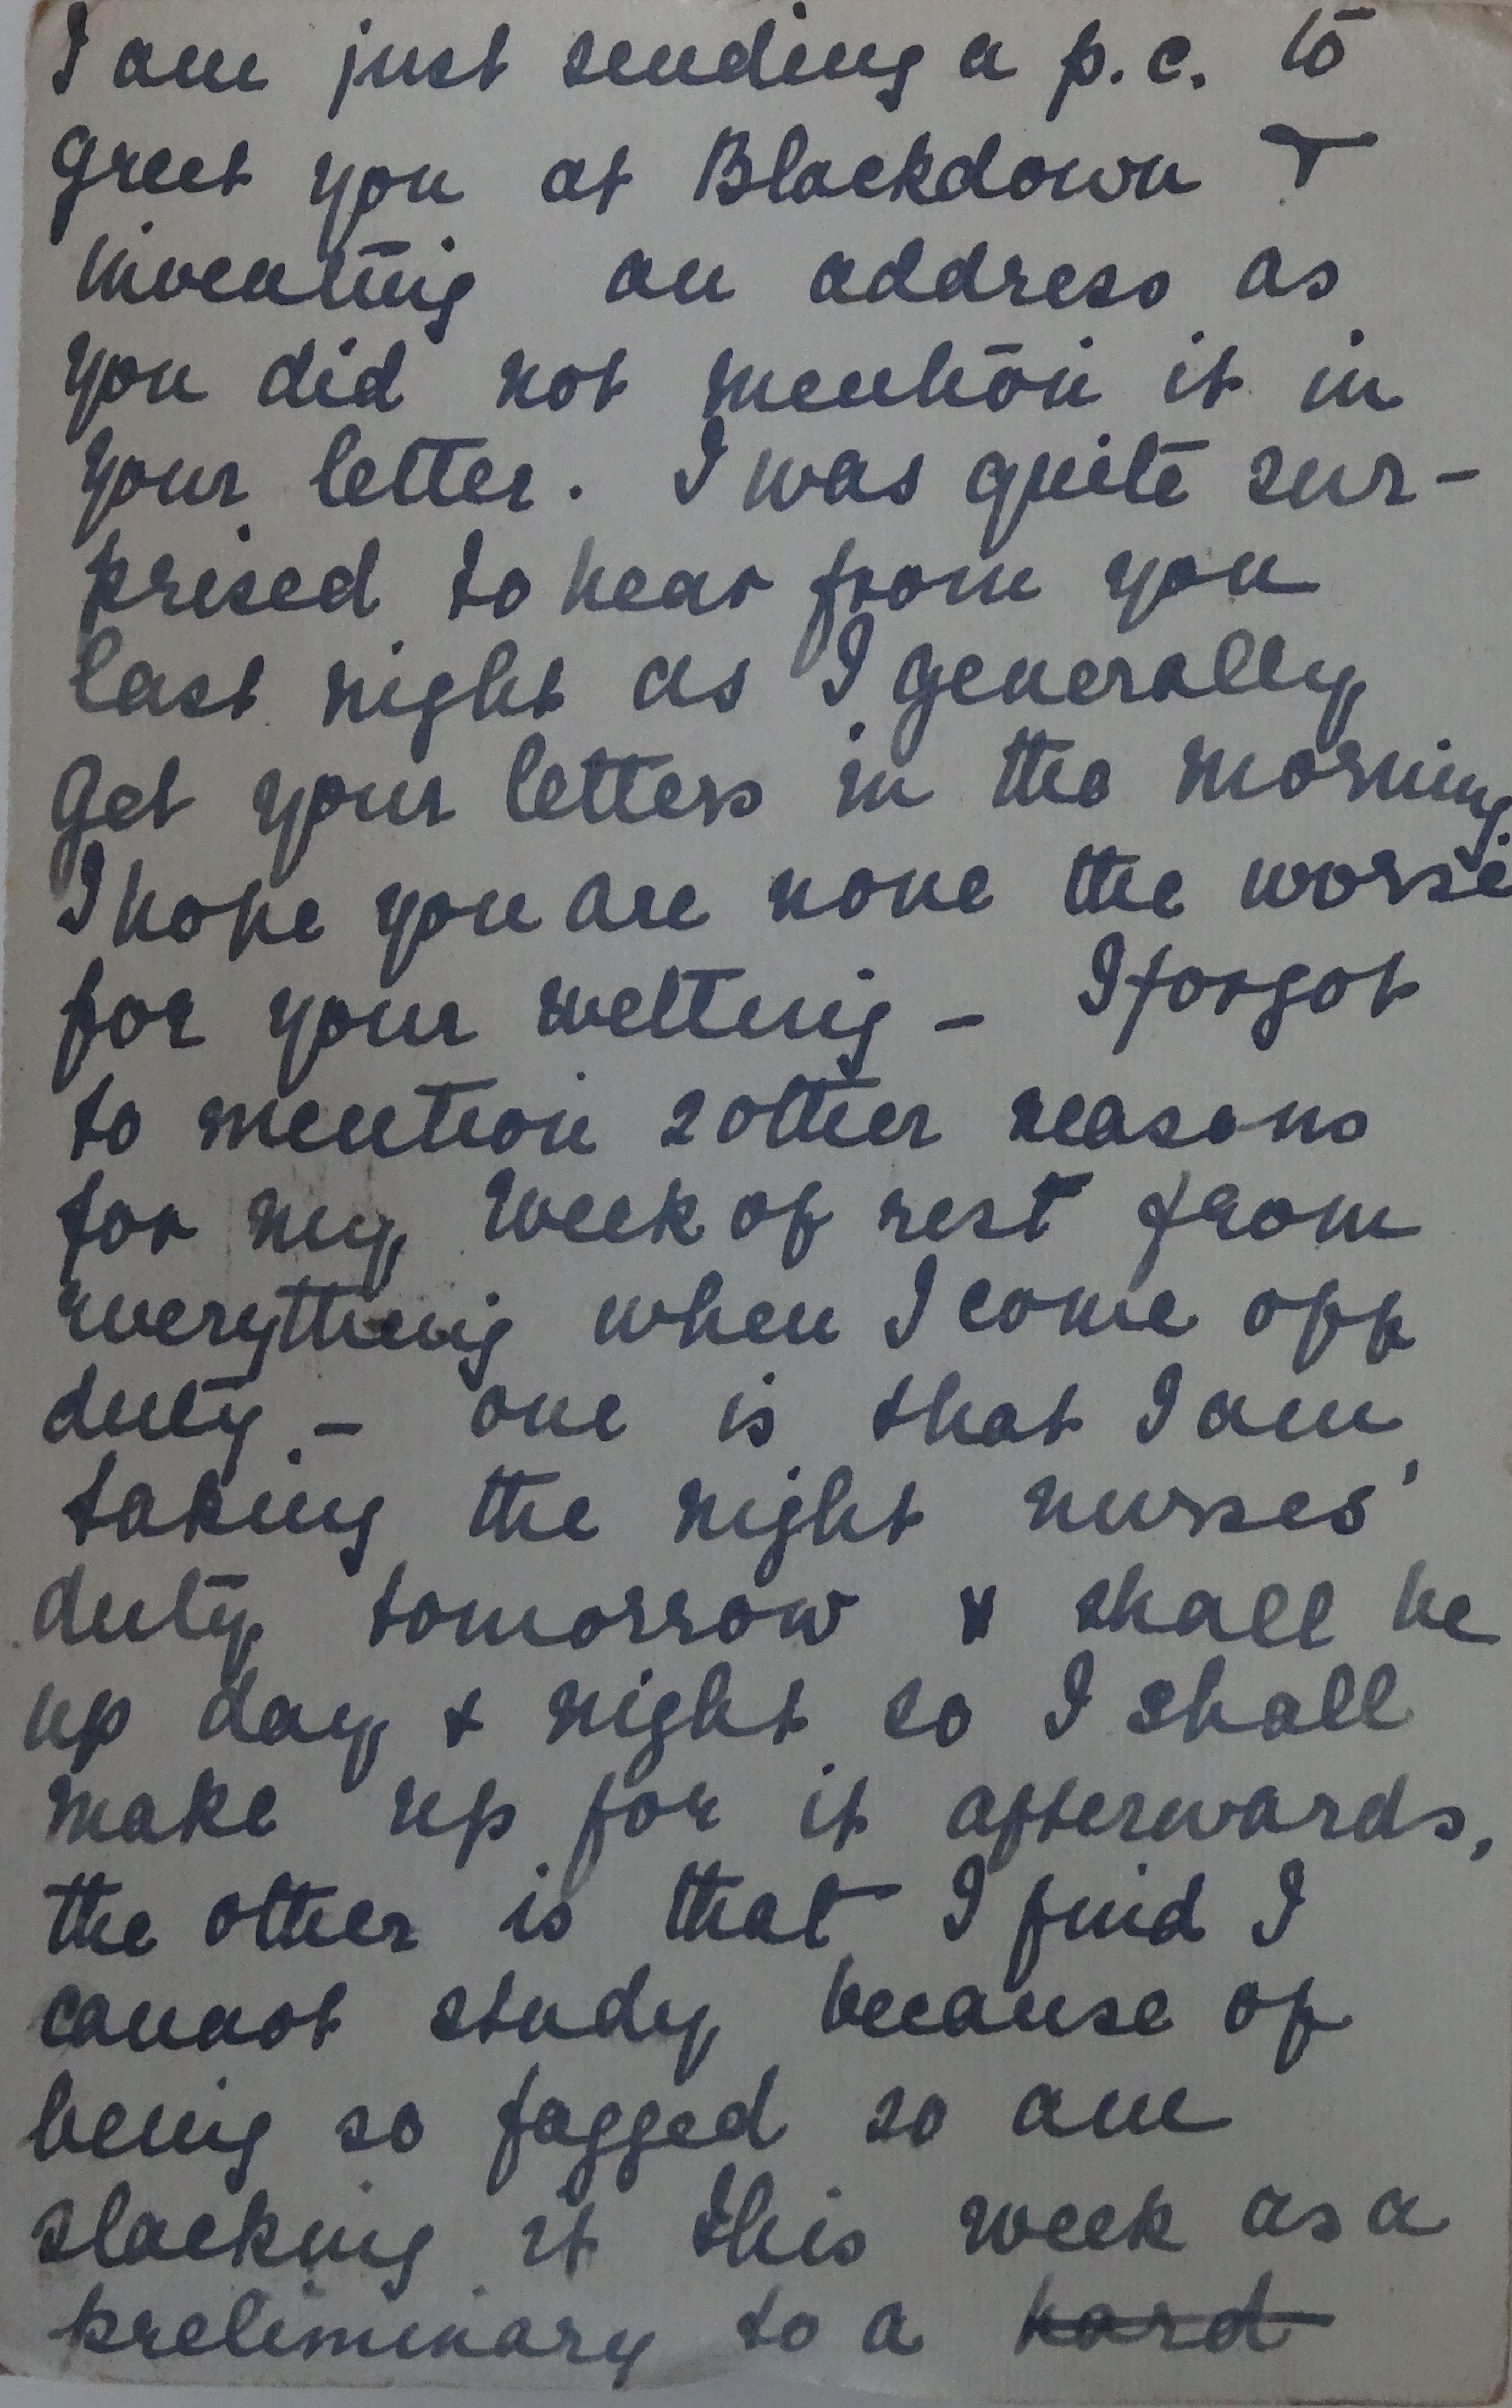 I am just sending a p.c. to
greet you at Blackdown &
inventing an address as
you did not mention it in
your letter. I was quite sur-
prised to hear from you
last night as I generally
get your letters in the morning.
I hope you are none the worse
for your wetting – I forgot
to mention 2 other reasons
for my week of rest from
everything when I come off
duty – one is that I am
taking the night nurses'
duty tomorrow & shall be
up day & night so I shall
make up for it afterwards,
the other is that I find I
cannot study because of
being so fagged so am
slacking it this week as a
preliminary to a hard